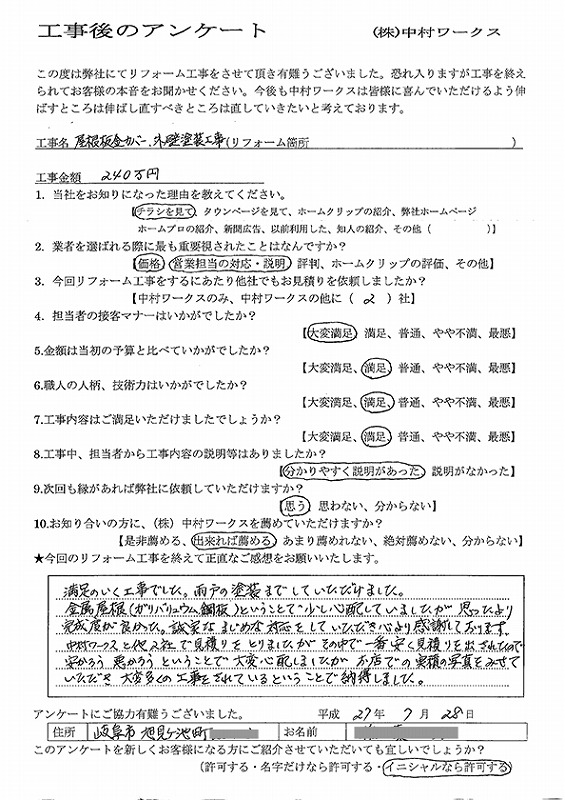 工事後のアンケート　(株)中村ワークス
この度は弊社にてリフォーム工事をさせて頂き有難うございました。恐れ入りますが工事を終え
られてお客様の本音をお聞かせください。今後も中村ワークスは皆様に喜んでいただけるよう伸
ばすところは伸ばし直すべきところは直していきたいと考えております。
工事名 屋根板金カバー、外壁塗装工事(リフォーム箇所　)
工事金額 240万円
1. 当社をお知りになった理由を教えてください。
【チラシを見て、タウンページを見て、ホームクリップの紹介、弊社ホームページ
ホームプロの紹介、新聞広告、以前利用した、知人の紹介、その他（　）】
2. 業者を選ばれる際に最も重要視されたことはなんですか？
【価格、営業担当の対応・説明、評判、ホームクリップの評価、その他】
3. 今回リフォーム工事をするにあたり他社でもお見積りを依頼しましたか？
【中村ワークスのみ、中村ワークスの他に（ 2 ）社】
4. 担当者の接客マナーはいかがでしたか？
【大変満足、満足、普通、やや不満、最悪】
5.金額は当初の予算と比べていかがでしたか？
【大変満足、満足、普通、やや不満、最悪】
6.職人の人柄、技術力はいかがでしたか？
【大変満足、満足、普通、やや不満、最悪】
7.工事内容はご満足いただけましたでしょうか？
【大変満足、満足、普通、やや不満、最悪】
8.工事中、担当者から工事内容の説明等はありましたか？
【分かりやすく説明があった、説明がなかった】
9.次回も縁があれば弊社に依頼していただけますか？
【思う、思わない、分からない】
10.お知り合いの方に、(株) 中村ワークスを薦めていただけますか？
【是非薦める、出来れば薦める、あまり薦めれない、絶対薦めない、分からない】
★今回のリフォーム工事を終えて正直なご感想をお願いいたします。
満足のいく工事でした。雨戸の塗装までしていただけました。
金属屋根(ガリバリュウム鋼板)ということで少し心配していましたが思ったより
完成度が良かった。誠実なまじめな対応をしていただき心より感謝しております。
中村ワークスと他2社で見積りをとりましたがその中で一番安く見積りを出されたので
安かろう悪かろうということで大変心配しましたがお店での実積の写真をみせて
いただき大変多くの工事をされているということで納得しました。
アンケートにご協力有難うございました。　平成 27年 7月 28日
住所　岐阜市 旭見ヶ池町　お名前
このアンケートを新しくお客様になる方にご紹介させていただいても宜しいでしょうか？
（許可する・名字だけなら許可する・イニシャルなら許可する）